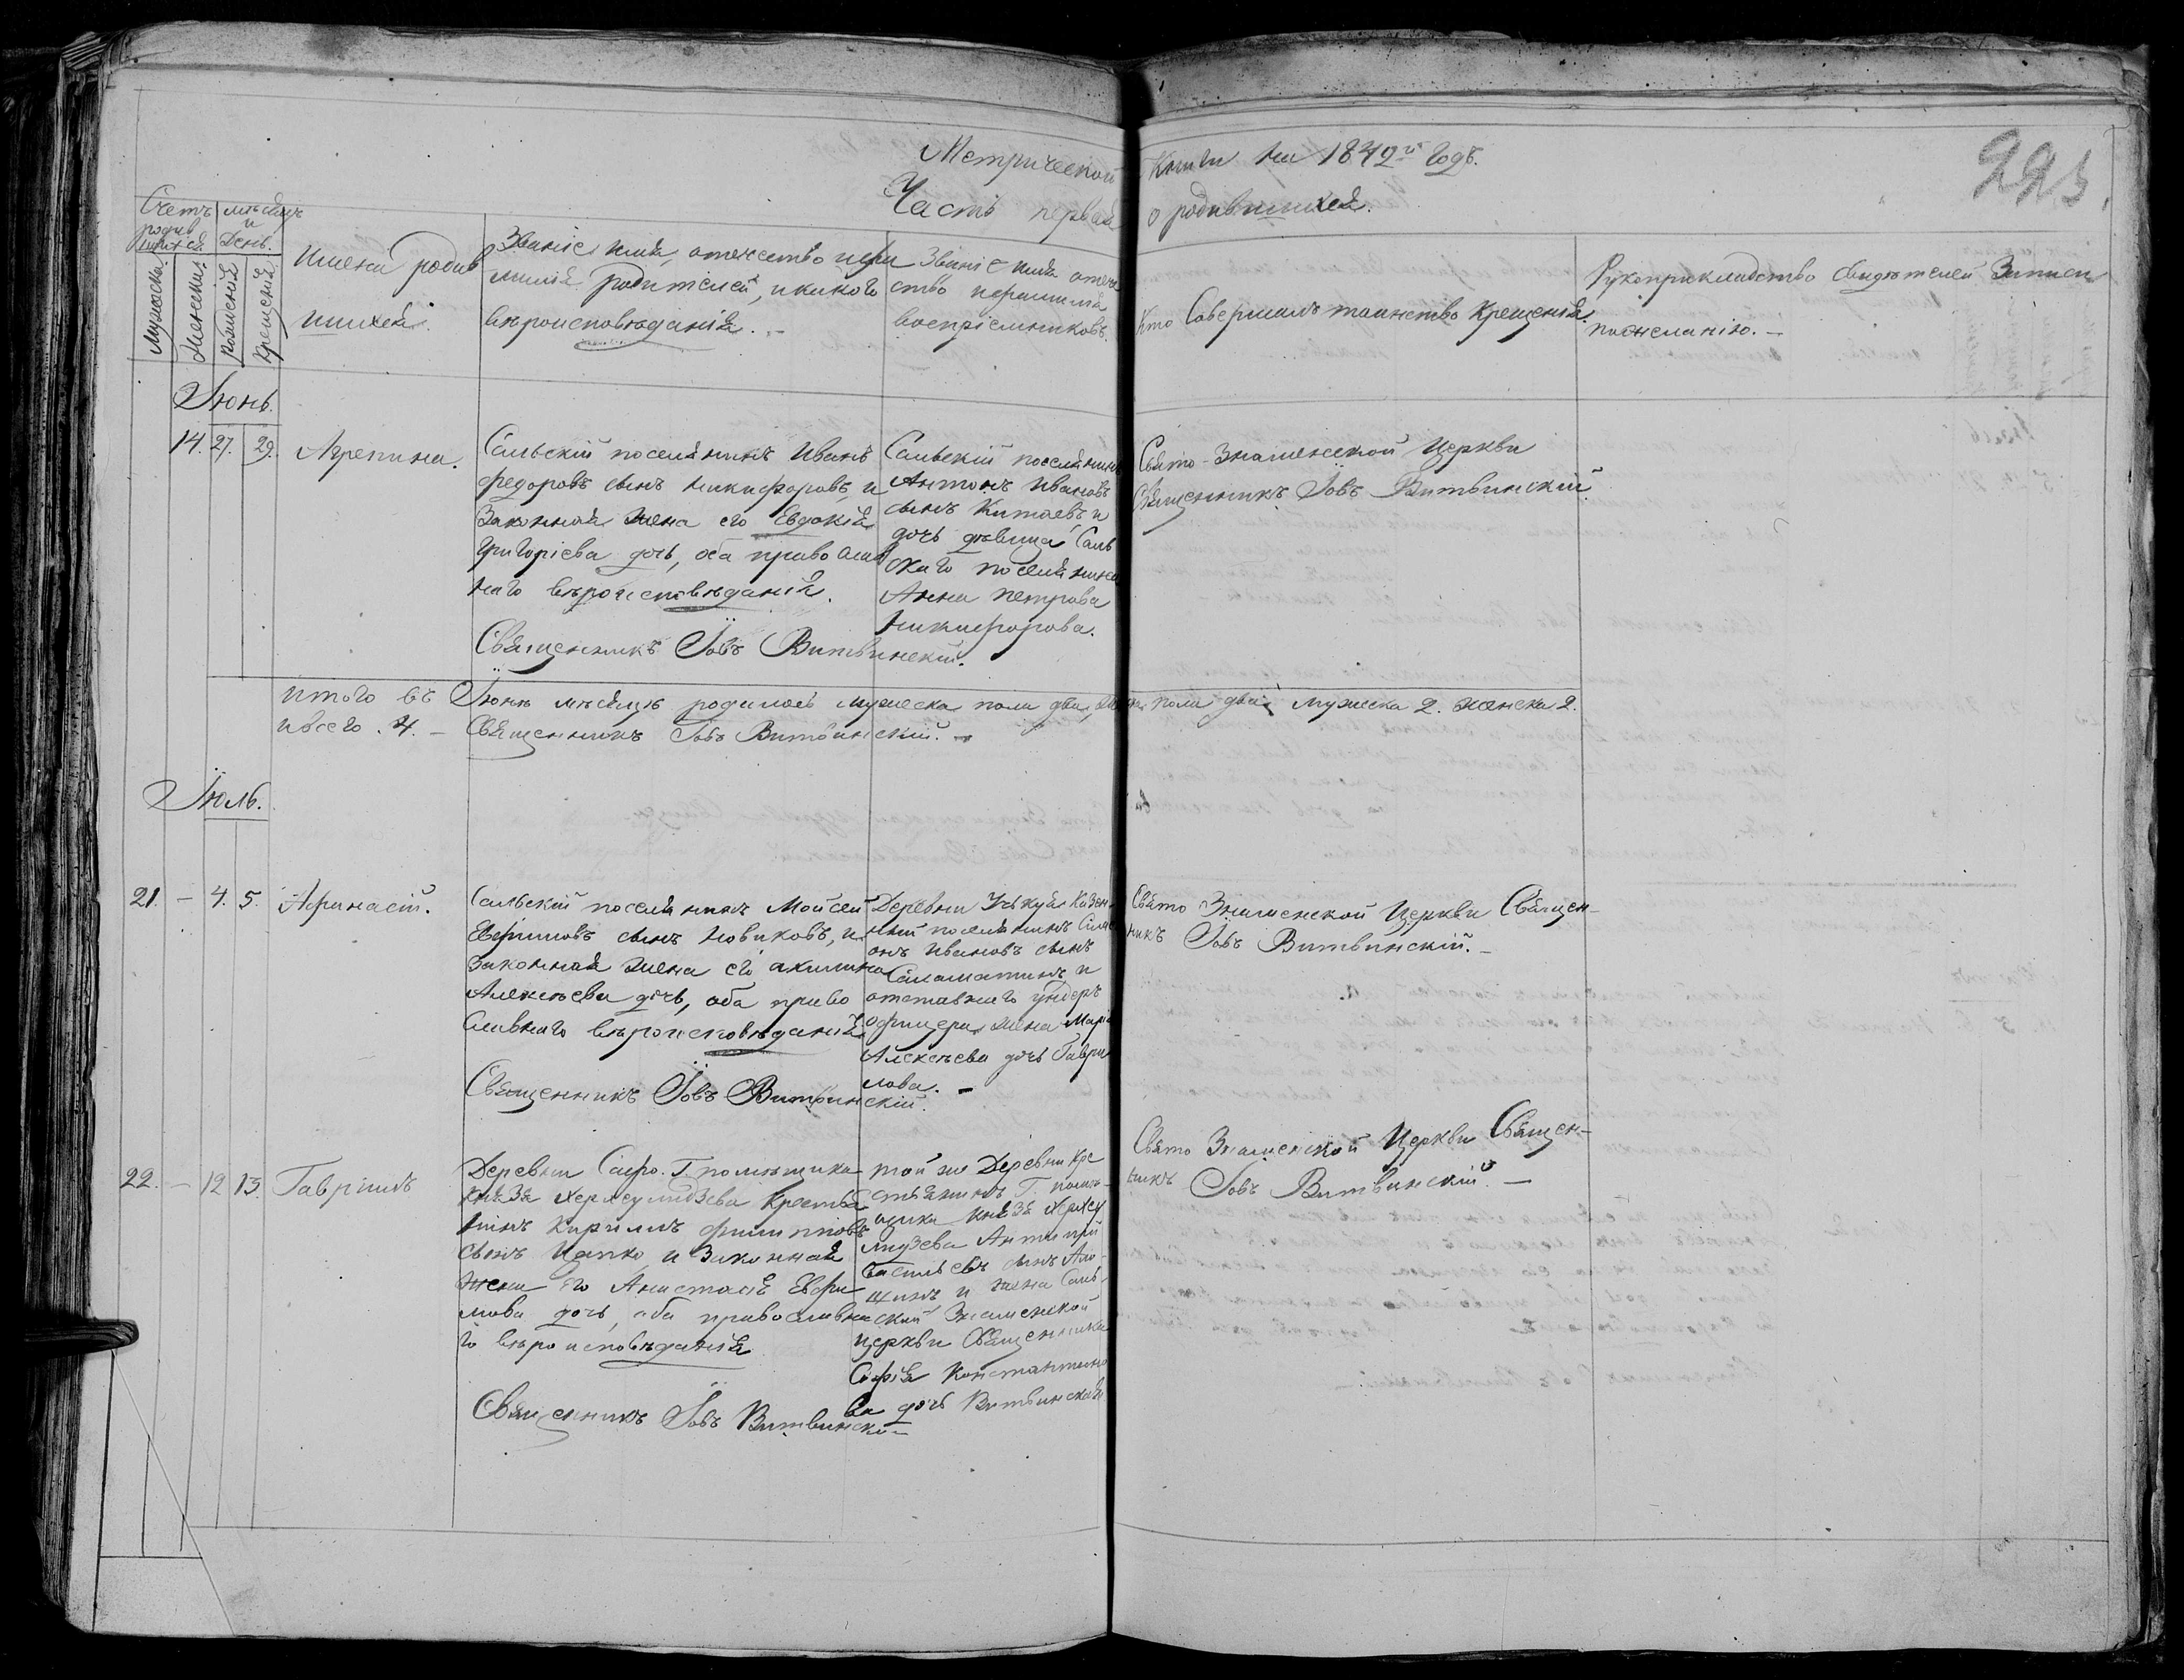 Метрической Книги на 1842й Годъ.
Часть первая о родившихся.
223.
Счетъ родившихся
мѣсяцъ и День.
Мужеска.
Женска.
Рожденія
Крещенія
Имена родив
шихся.
Званіе имя, отечество и фа
милія родителей, и какого
вѣроисповѣданія.
Званіе имя отече
ство и фамилія
воспріемниковъ.
Кто Совершалъ таинство Крещенія.
Рукоприкладство свидѣтелей Записи
по желанію.
Іюнь.
14. 27. 29. Агрепина.
Сальскій поселянинъ Иванъ
Федоровъ сынъ Никифоровъ, и
Законная жена его Евдокія
Григоріева дочь, оба православ
наго вѣроисповѣданія.
Священникъ Іовъ Витвинскій.
Сальскій поселянинъ
Антонъ Ивановъ
сынъ Китаевъ и
дочь дѣвица Саль
скаго поселянина
Анна Петрова
Никифорова.
Свято-Знаменской Церкви
Священникъ Іовъ Витвинскій.
Итого въ Іюнѣ мѣсяцѣ родилось мужеска пола два, женска пола два мужеска 2. женска 2.
и всего. 4. — Священникъ Іовъ Витвинскій. —
Іюль.
21. — 4. 5. Афанасій.
Сальскій поселянинъ Мойсей
Ефимовъ сынъ Новиковъ, и
Законная жена его Акилина
Алексѣева дочь, оба право
славнаго вѣроисповѣданія.
Священникъ Іовъ Витвинскій.
Деревни Казен
ный поселянинъ
онъ Ивановъ сынъ
Саламатинъ и
отставнаго ундеръ
офицера жена Марія
Алексѣева дочь Гаври
лова. —
Свято Знаменской Церкви Священ-
никъ Іовъ Витвинскій. —
22. — 12 13. Гавріилъ
Деревни Г. помѣщика
князя Крестья
нинъ Кирилъ Филиповъ
сынъ Цапко, и Законная
жена его Анастасія Ефи
мова дочь, оба православна
го вѣроисповѣданія
Священникъ Іовъ Витвинскій
той же Деревни Кре
стьянинъ Г. помѣ-
щика князя
Антипій
Васильевъ сынъ
и жена Саль-
ской Знаменской
церкви Священника
Софія Константино
ва дочь Витвинская
Свято Знаменской Церкви Священ-
никъ Іовъ Витвинскій. —